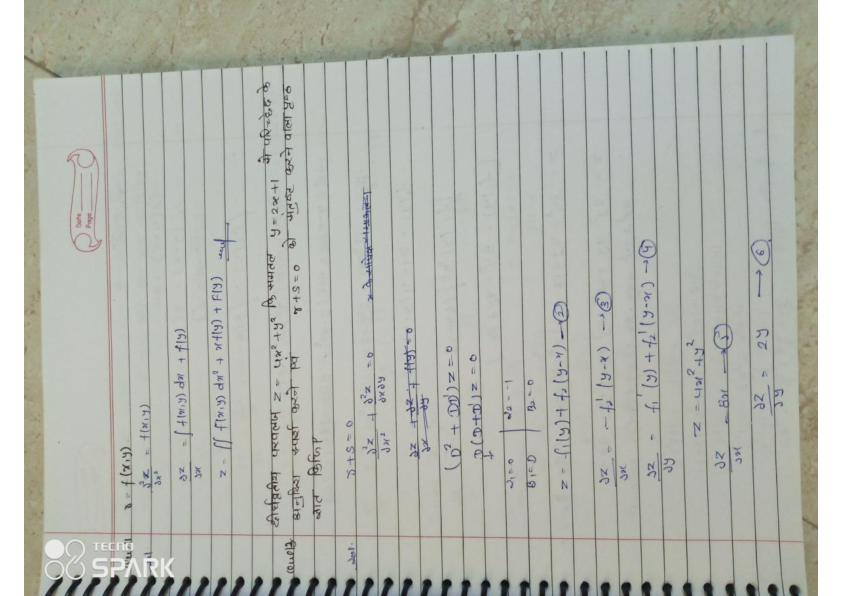 Date
Page
r = f(x,y)
∂²z/∂x² = f(x,y)
∂z/∂x = ∫ f(x,y) dx + f(y)
z = ∬ f(x,y) dx² + x f(y) + F(y)
दीर्घवृत्तीय परवलयज z = 4x²+y² कि समतल y = 2x+1 से परिच्छेद के
अनुदिश स्पर्श करने एवं r+s = 0 को संतुष्ट करने वाला पृष्ठ
ज्ञात किजिए
r+s = 0
∂²z/∂x² + ∂²z/∂x∂y = 0
∂z/∂x + ∂z/∂y + f(y) = 0
(D² + DD')z = 0
D(D+D')z = 0
z = f₁(y) + f₂(y-x) → ②
∂z/∂x = -f₂'(y-x) → ③
∂z/∂y = f₁'(y) + f₂'(y-x) → ④
z = 4x²+y²
∂z/∂x = 8x → ⑤
∂z/∂y = 2y → ⑥
TECNO
SPARK